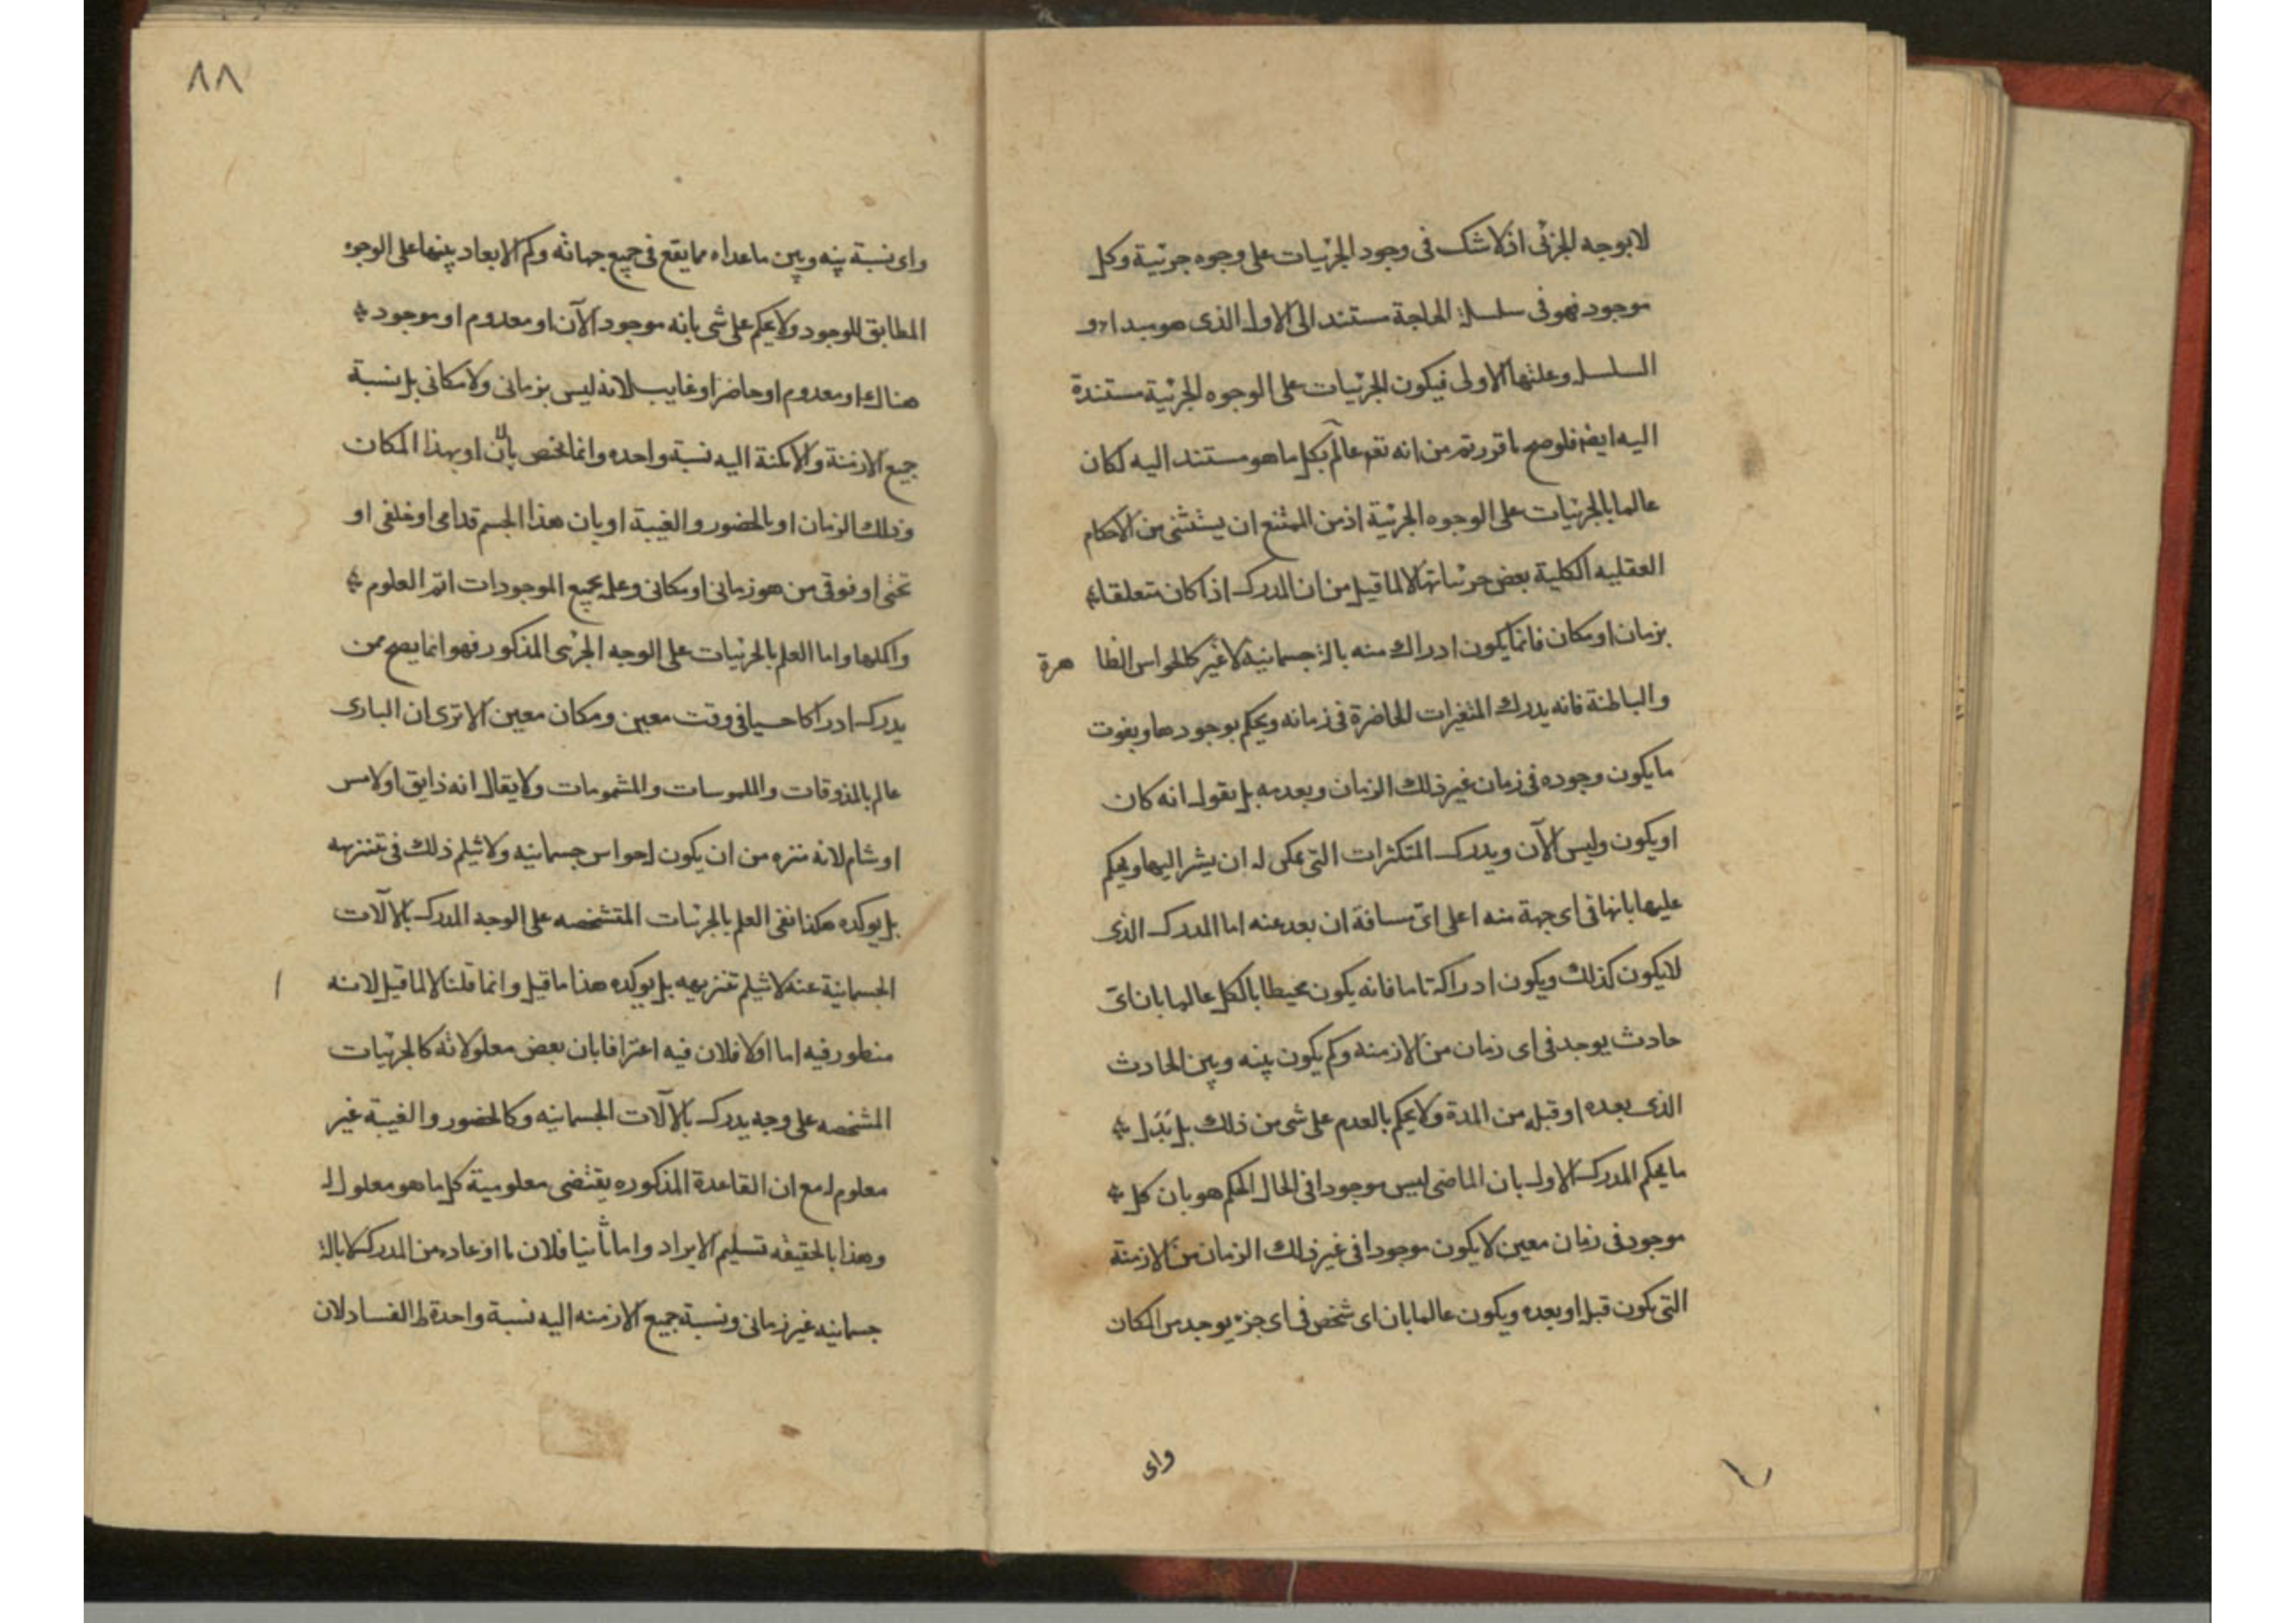 لا بوجه الجزئى اذ لا شك فى وجود الجزئيات على وجوه جزئية وكل
موجود فهو فى سلسلة الحاجة مستند الى الاول الذى هو مبداء
السلسل وعلتها الاولى فيكون الجزئيات على الوجوه الجزئية مستندة
اليه ايضا فلو صح ما قررتم من انه تعم عالم بكل ما هو مستند اليه لكان
عالما بالجزئيات على الوجوه الجزئية اذ من الممتنع ان يستثنى من الاحكام
العقليه الكلية بعض جزئياتها لا لما قيل من ان المدرك اذا كان متعلقا
بزمان او مكان فانما يكون ادراك منه بالة جسمانية لا غير كالحواس الظا هرة
والباطنة فانه يدرك المتغيرات الحاضرة فى زمانه ويحكم بوجودها ويفوت
ما يكون وجوده فى زمان غير ذلك الزمان وبعدمه بل يقول انه كان
او يكون وليس الآن ويدرك المتكثرات التى يمكن له ان يشير اليها ويحكم
عليها بانها فى اى جهة منه اعلى اىّ مسافة ان بعد عنه اما المدرك الذى
لا يكون كذلك ويكون ادراكه تاما فانه يكون محيطا بالكل عالما بان اىّ
حادث يوجد فى اى زمان من الازمنه وكم يكون بينه وبين الحادث
الذى بعده او قبله من المدة ولا يحكم بالعدم على شى من ذلك بل بَدَل
ما يحكم المدرك الاول بان الماضى ليس موجودا فى الحال الحكم هو بان كل
موجود فى زمان معين لا يكون موجودا فى غير ذلك الزمان من الازمنة
التى يكون قبل او بعده ويكون عالما بان اى شخص فى اى جزء يوجد من المكان
واى
٨٨
واى نسبة بينه وبين ما عداه مما يقع فى جميع جهاته وكم الابعاد بينها على الوجوه
المطابق للوجود ولا يحكم على شى بانه موجود الآن او معدوم او موجود
هناك او معدوم او حاضر او غايب لانه ليس بزمانى ولا مكانى بل نسبة
جميع الازمنة والامكنة اليه نسبة واحده وانما يختص بالآن او بهذا المكان
وذلك الزمان او بالحضور والغيبة او بان هذا الجسم قدامى او خلفى او
تحتى او فوقى من هو زمانى او مكانى وعلمه بجميع الموجودات اتم العلوم
واكملها واما العلم بالجزئيات على الوجه الجزئى المذكور فهو انما يصح ممن
يدرك ادراكا حسيا فى وقت معين ومكان معين الا ترى ان البارى
عالم بالمذوقات والملموسات والمشمومات ولا يقال انه ذايق او لامس
او شام لانه منزه من ان يكون له حواس جسمانيه ولا يثلم ذلك فى تنزيهه
بل يوكده هكذا نفى العلم بالجزئيات المتشخصه على الوجه المدرك بالآلات
الجسمانية عنه لا يثلم تنزيهه بل يوكده هذا ما قيل وانما قلنا لا لما قيل لانه
منظور فيه اما اولا فلان فيه اعترافا بان بعض معلولاته كالجزئيات
المشخصه على وجه يدرك بالآلات الجسمانيه وكالحضور والغيبة غير
معلوم له مع ان القاعدة المذكوره يقتضى معلومية كل ما هو معلول له
وهذا بالحقيقه تسليم الايراد واما ثانيا فلان ما ادعاه من المدرك لا بالة
جسمانيه غير زمانى ونسبة جميع الازمنه اليه نسبة واحدة ظ الفساد لان